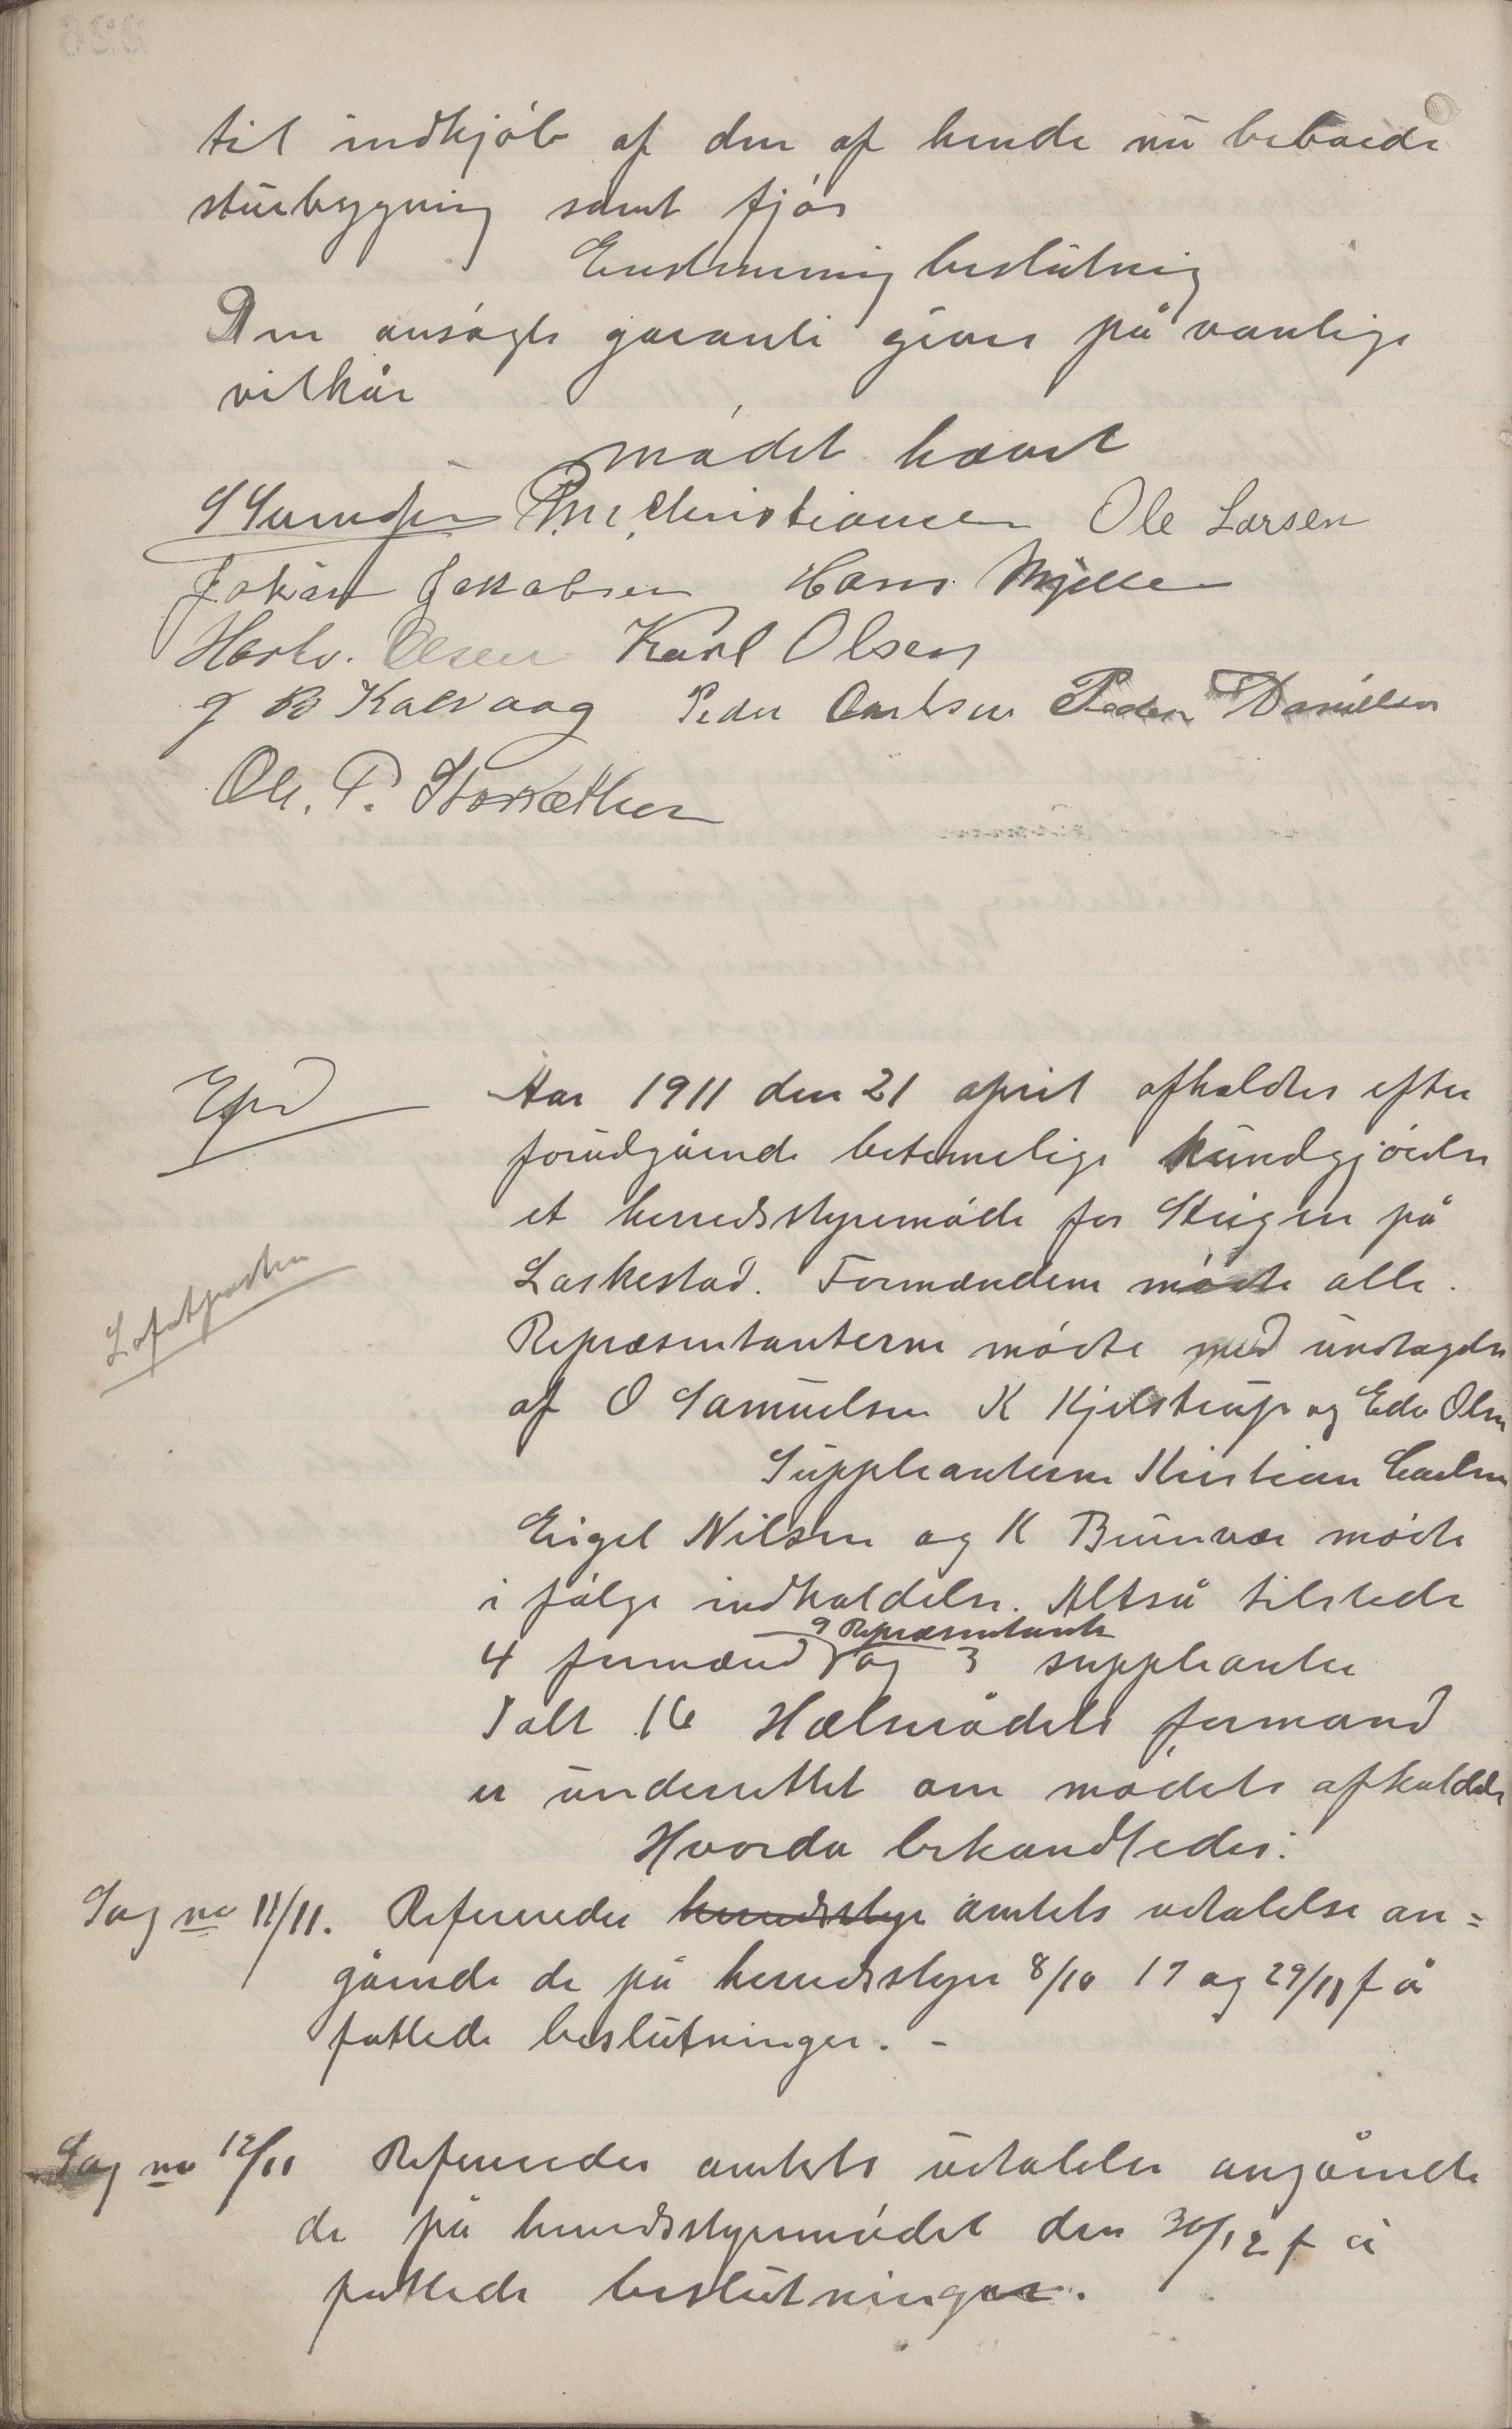 til indkjøb af den af hende nu beboede
stuebygning samt fjøs
Enstemmig beslutning
Den ansøgte garanti gives på vanlige
vilkår
mødet hævet
P. M. Christiansen Ole Larsen
Johan Jakobsen Hans Mjelle
Hartv. Olsen Karl Olsen
J B Kalvaag Peder Carlsen Peder Daniellsen
Ole. P. Storsæther
Aar 1911 den 21 april afholdtes efter
forudgående betimelige kundgjørelse
et herredsstyremøde for Steigen på
Laskestad. Formændene mødte alle.
Repræsentanterne mødte med undtagelse
af O Samuelsen K Kjelstrup og Edv Olsen
Suppleanterne Kristian Carlsen
Eigel Nilsen og K Brunvær mødte
i følge indkaldelse. Altså tilstede
9 Repræsentanter
4 formænd og 3 suppleanter
Ialt 16 Helserådets formand
er underrettet om mødets afholdelse
Hvorda behandledes:
Sag no 11/11. Refereredes herredsstyre amtets udtalelse an=
gående de på herredsstyre 8/10 17 og 29/11 f å
fattede beslutninger. -
Sag no 12/11 Refereredes amtets udtalelse angående
de på herredsstyremødet den 30/12 f å
fattede beslutninger.